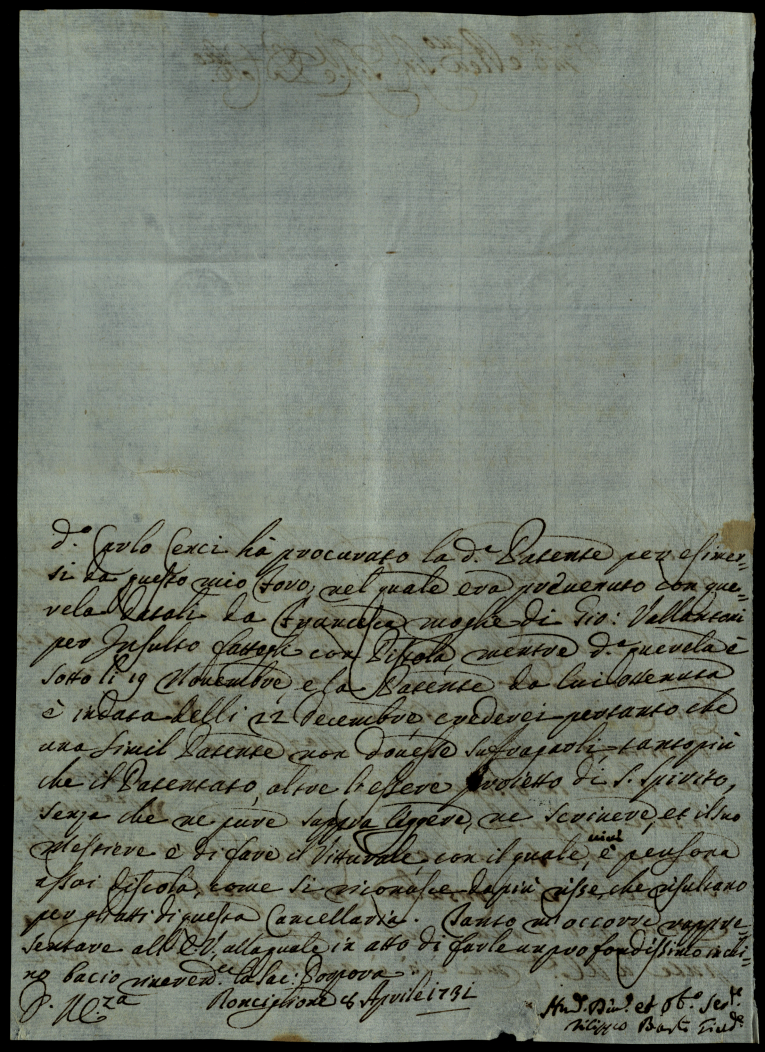 d.º Carlo Cenci hà procurato la d.ª Patente per esimer=
si da questo mio Foro, nel quale era prevenuto con que=
rela datali da Francesca moglie di Gio: Vallantoni
per Insulto fattogli con Pistola, mentre d.ª querela è
sotto li 19 Novembre e la Patente da lui ottenuta
è in data delli 22 Decembre, crederei pertanto che
una simil Patente non dovesse suffragarli, tantopiù
che il Patentato, oltre l'essere Proietto di S. Spirito,
senza che ne pure sappia leggere, ne scrivere, et il suo
mestiere è di fare il Vitturale, con il quale vive, è persona
assai discola, come si riconosce da più risse, che risultano
per gl'atti di questa Cancellaria. Tanto m'occorre rappre=
sentare all'E.V., alla quale in atto di farle un profondissimo inchi=
no bacio riverend.te la Sac: Porpora
Ronciglione 8 Aprile 1731
Hu.º Div.º et Ob.º Ser.re
Filippo